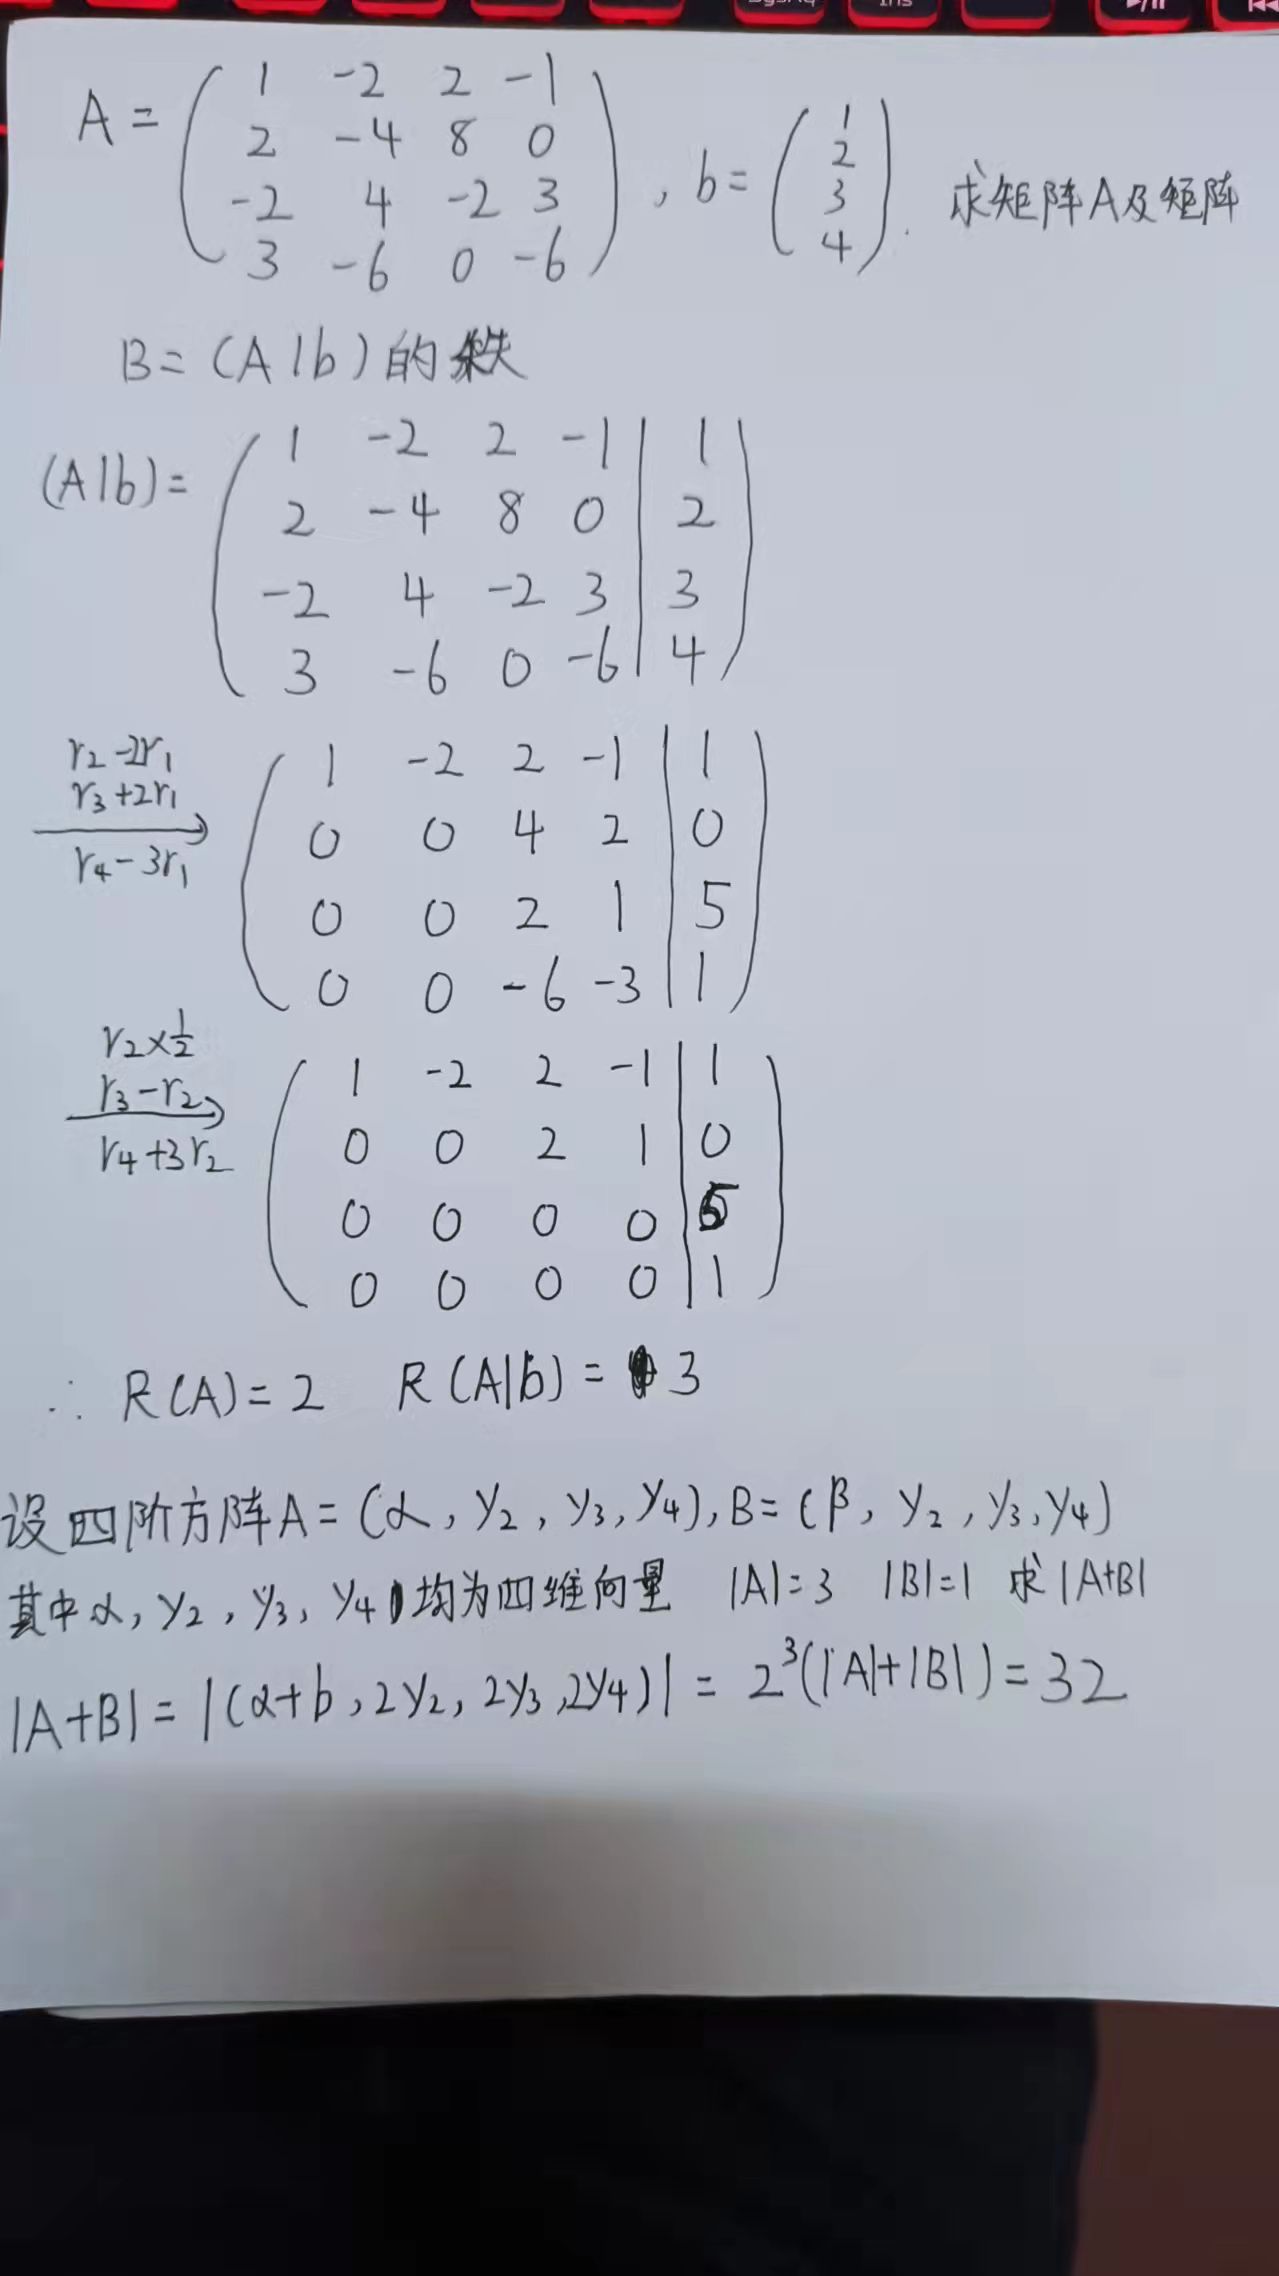 A = ( 1 -2 2 -1
2 -4 8 0
-2 4 -2 3
3 -6 0 -6 ) , b = ( 1 2 3 4 ) . 求矩阵A及矩阵
B = (A|b) 的秩
(A|b) = ( 1 -2 2 -1 | 1
2 -4 8 0 | 2
-2 4 -2 3 | 3
3 -6 0 -6 | 4 )
r₂-2r₁
r₃+2r₁
r₄-3r₁
( 1 -2 2 -1 | 1
0 0 4 2 | 0
0 0 2 1 | 5
0 0 -6 -3 | 1 )
r₂×1/2
r₃-r₂
r₄+3r₂
( 1 -2 2 -1 | 1
0 0 2 1 | 0
0 0 0 0 | 5
0 0 0 0 | 1 )
∴ R(A) = 2 R(A|b) = 3
设四阶方阵A = (α, y₂, y₃, y₄), B = (β, y₂, y₃, y₄)
其中α, y₂, y₃, y₄均为四维向量 |A|=3 |B|=1 求|A+B|
|A+B| = |(α+b, 2y₂, 2y₃, 2y₄)| = 2³(|A|+|B|) = 32